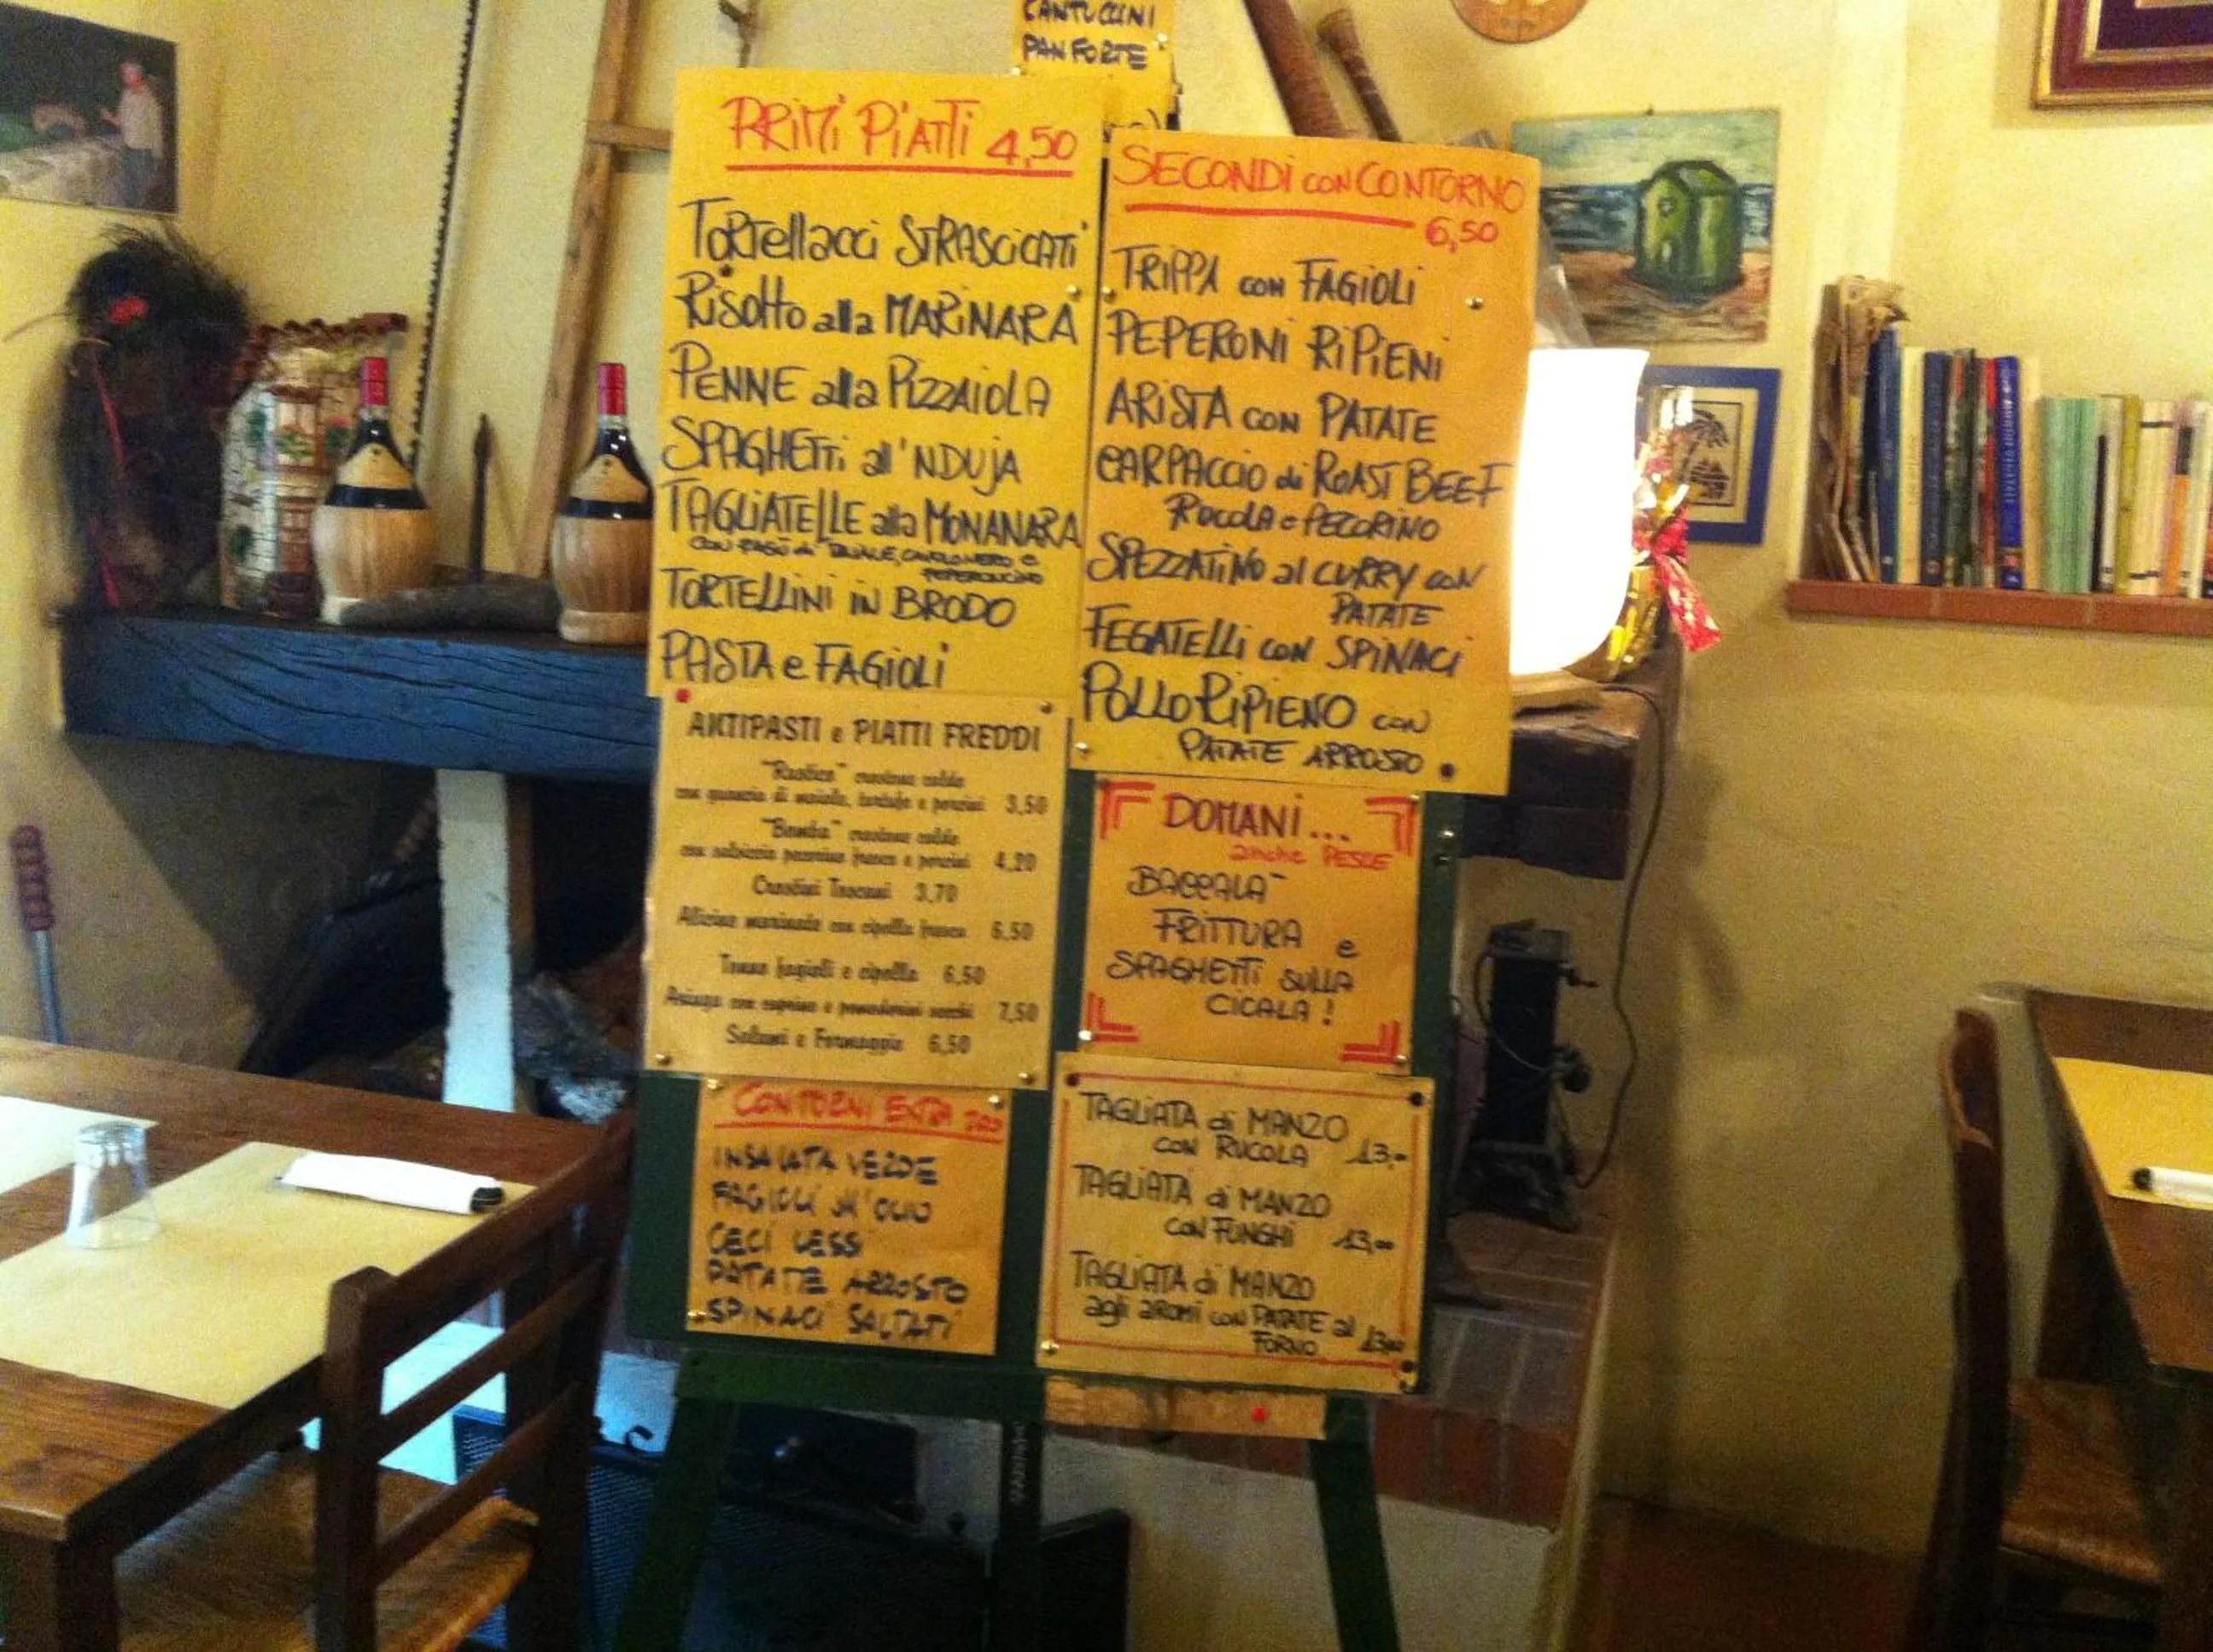 CANTUCCINI
PANFORTE
PRIMI PIATTI 4,50
TORTELLACCI STRASCICATI
RISOTTO alla MARINARA
PENNE alla PIZZAIOLA
SPAGHETTI all'NDUJA
TAGLIATELLE alla MONANARA
CON RAGÙ di MAIALE, CAVOLONERO e
PEPERONCINO
TORTELLINI IN BRODO
PASTA e FAGIOLI
SECONDI CON CONTORNO
6,50
TRIPPA CON FAGIOLI
PEPERONI RIPIENI
ARISTA CON PATATE
CARPACCIO di ROAST BEEF
RUCOLA e PECORINO
SPEZZATINO al CURRY CON
PATATE
FEGATELLI CON SPINACI
POLLO RIPIENO CON
PATATE ARROSTO
ANTIPASTI e PIATTI FREDDI
"Rustica" crostone caldo
con guancia di maiale, tartufo e porcini 3,50
"Bomba" crostone caldo
con salsiccia pecorino fresco e porcini 4,20
Crostini Toscani 3,70
Alicine marinate con cipolla fresca 6,50
Tonno fagioli e cipolla 6,50
con caprino e pomodorini secchi 7,50
Salumi e Formaggio 6,50
DOMANI...
anche PESCE
BACCALA'
FRITTURA e
SPAGHETTI SULLA
CICALA!
CONTORNI EXTRA
INSALATA VERDE
FAGIOLI all'OLIO
CECI LESSI
PATATE ARROSTO
SPINACI SALTATI
TAGLIATA di MANZO
CON RUCOLA 13,00
TAGLIATA di MANZO
CON FUNGHI 13,00
TAGLIATA di MANZO
agli aromi con PATATE al
FORNO 13,00